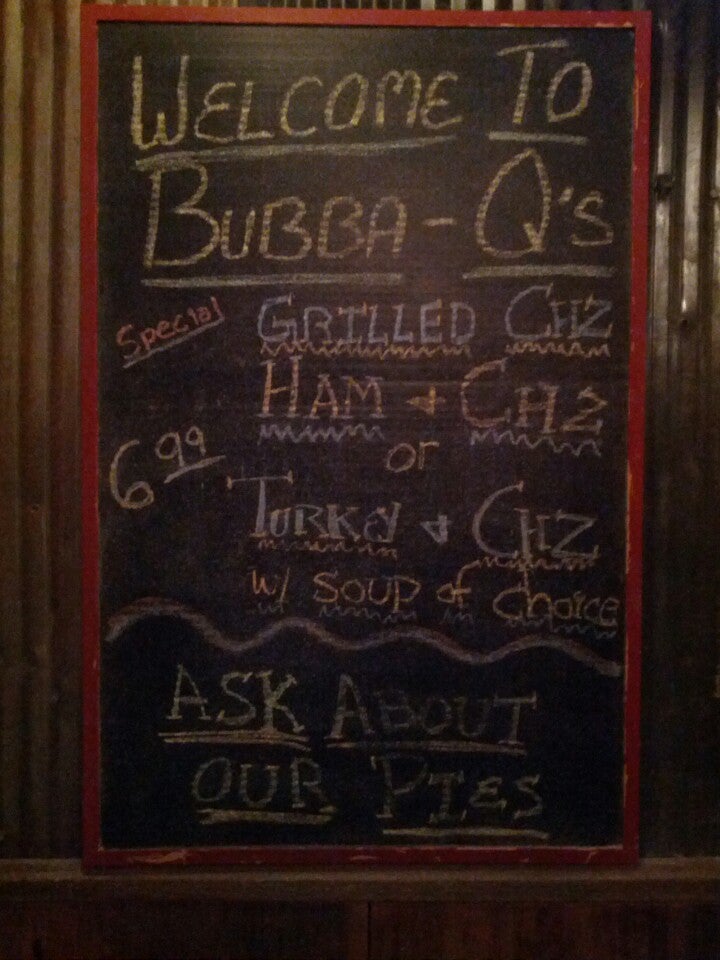 WELCOME TO
BUBBA-Q'S
Special
GRILLED CHZ
HAM + CHZ
or
6.99
TURKEY + CHZ
w/ SOUP of choice
ASK ABOUT
OUR PIES